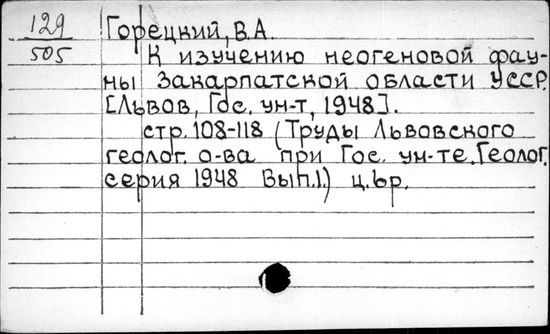 129
505
Горецкий, В.А.
К изучению неогеновой фау-
ны Закарпатской области УССР.
[Львов, Гос. ун-т, 1948].
стр. 108-118 (Труды Львовского
геолог. о-ва при Гос. ун-те. Геолог.
серия 1948 Вып.1.) ц.ьр.